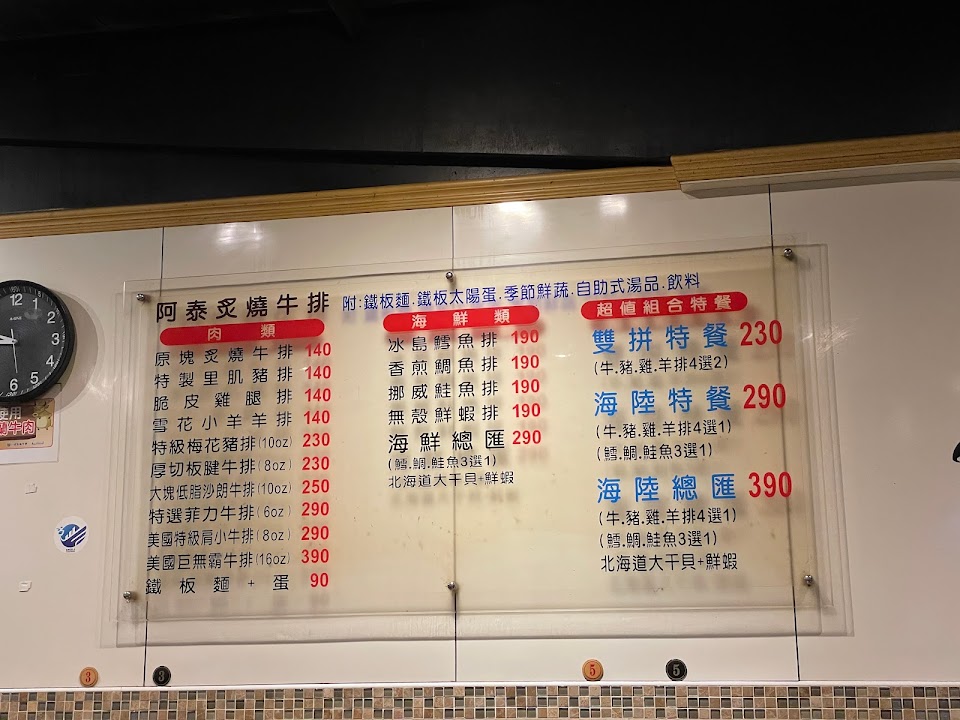 阿泰炙燒牛排
附:鐵板麵.鐵板太陽蛋.季節鮮蔬.自助式湯品.飲料
肉類
原塊炙燒牛排 140
特製里肌豬排 140
脆皮雞腿排 140
雪花小羊羊排 140
特級梅花豬排(10oz) 230
厚切板腱牛排(8oz) 230
大塊低脂沙朗牛排(10oz) 250
特選菲力牛排(6oz) 290
美國特級肩小牛排(8oz) 290
美國巨無霸牛排(16oz) 390
鐵板麵+蛋 90
海鮮類
冰島鱈魚排 190
香煎鯛魚排 190
挪威鮭魚排 190
無殼鮮蝦排 190
海鮮總匯 290
(鱈.鯛.鮭魚3選1)
北海道大干貝+鮮蝦
超值組合特餐
雙拼特餐 230
(牛.豬.雞.羊排4選2)
海陸特餐 290
(牛.豬.雞.羊排4選1)
(鱈.鯛.鮭魚3選1)
海陸總匯 390
(牛.豬.雞.羊排4選1)
(鱈.鯛.鮭魚3選1)
北海道大干貝+鮮蝦
12
1
2
3
4
5
6
使用
牛肉
3
3
5
5